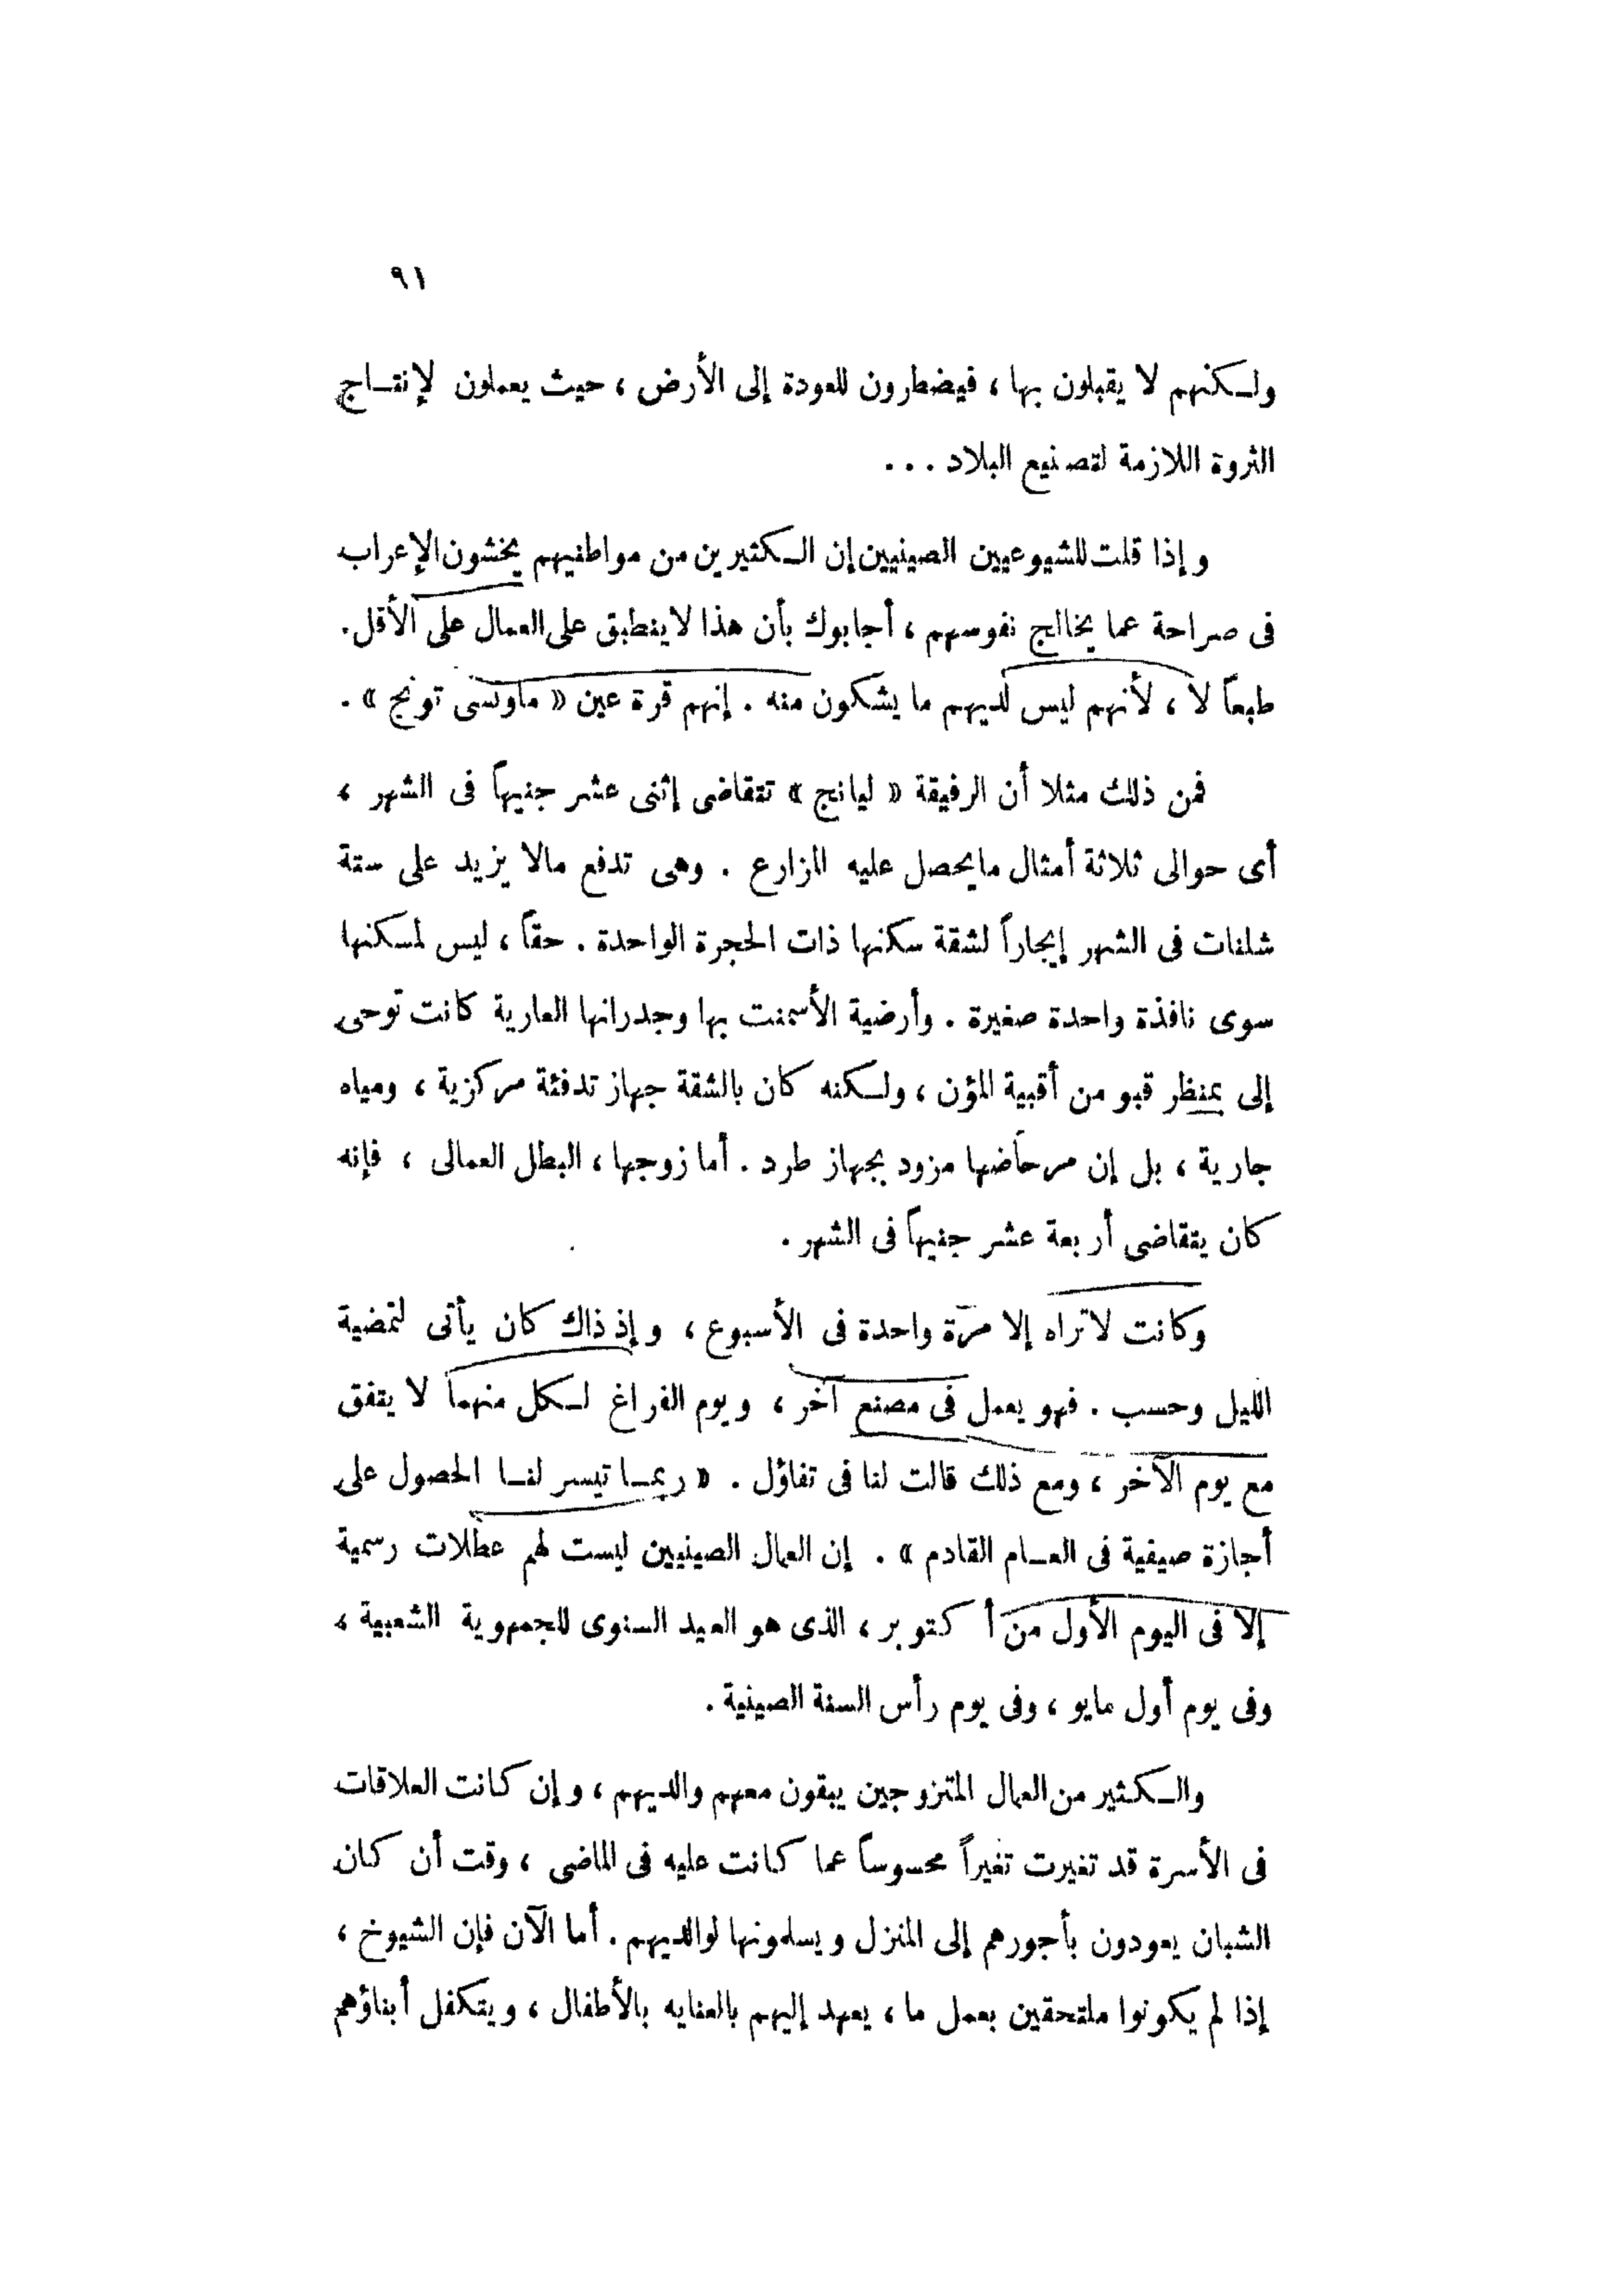 ٩١
ولكنهم لا يقبلون بها ، فيضطرون للعودة إلى الأرض ، حيث يعملون لإنتاج
الثروة اللازمة لتصنيع البلاد . . .
وإذا قلت للشيوعيين الصينيين إن الكثيرين من مواطنيهم يخشون الإعراب
فى صراحة عما يخالج نفوسهم ، أجابوك بأن هذا لا ينطبق على العمال على الأقل .
طبعاً لا ، لأنهم ليس لديهم ما يشكون منه . إنهم قرة عين « ماوتسى تونج » .
فمن ذلك مثلا أن الرفيقة « ليانج » تتقاضى إثنى عشر جنيهاً فى الشهر ،
أى حوالى ثلاثة أمثال ما يحصل عليه المزارع . وهى تدفع مالا يزيد على ستة
شلنات فى الشهر إيجاراً لشقة سكنها ذات الحجرة الواحدة . حقاً ، ليس لمسكنها
سوى نافذة واحدة صغيرة . وأرضية الأسمنت بها وجدرانها العارية كانت توحى
إلى بمنظر قبو من أقبية المؤن ، ولكنه كان بالشقة جهاز تدفئة مركزية ، ومياه
جارية ، بل إن مرحاضها مزود بجهاز طرد . أما زوجها ، البطل العمالى ، فإنه
كان يتقاضى أربعة عشر جنيهاً فى الشهر .
وكانت لا تراه إلا مرّة واحدة فى الأسبوع ، وإذ ذاك كان يأتى لتمضية
الليل وحسب . فهو يعمل فى مصنع آخر ، ويوم الفراغ لكل منهما لا يتفق
مع يوم الآخر ، ومع ذلك قالت لنا فى تفاؤل . « ربما تيسر لنا الحصول على
أجازة صيفية فى العام القادم » . إن العمال الصينيين ليست لهم عطلات رسمية
إلا فى اليوم الأول من أكتوبر ، الذى هو العيد السنوى للجمهوية الشعبية ،
وفى يوم أول مايو ، وفى يوم رأس السنة الصينية .
والكثير من العمال المتزوجين يبقون معهم والديهم ، وإن كانت العلاقات
فى الأسرة قد تغيرت تغيراً محسوساً عما كانت عليه فى الماضى ، وقت أن كان
الشبان يعودون بأجورهم إلى المنزل ويسلمونها لوالديهم . أما الآن فإن الشيوخ ،
إذا لم يكونوا ملتحقين بعمل ما ، يعهد إليهم بالعنايه بالأطفال ، ويتكفل أبناؤهم